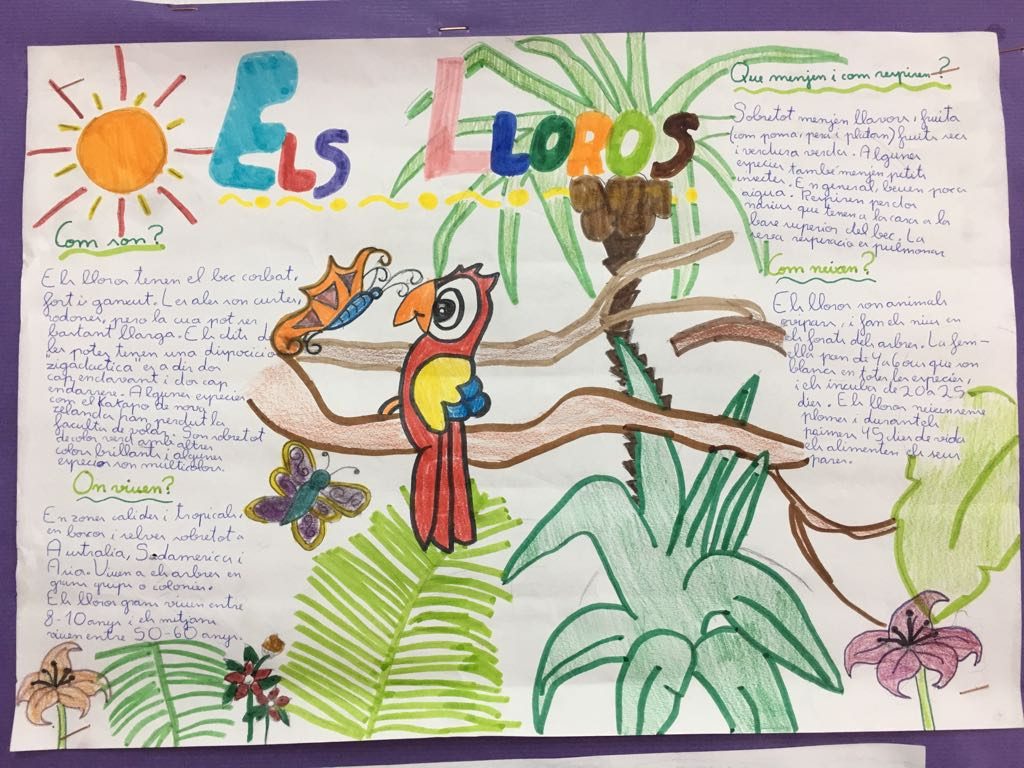 ELS LLOROS
Com son?
Els lloros tenen el bec corbat,
fort i ganxut. Les ales son curtes,
rodones, pero la cua pot ser
bastant llarga. Els dits de
les potes tenen una disposició
zigadactica es a dir dos
cap endavant i dos cap
endarrere. Algunes especies
com el Katapo de nova
zelanda han perdut la
facultis de volar. Son sobretot
de color verd amb altres
colors brillants i algunes
especies son multicolors.
On viuen?
En zones calides i tropicals,
en boscos i selves sobretot a
Australia, Sudamerica i
Asia. Viuen a els arbres en
grans grups o colonies.
Els lloros grans viuen entre
8-10 anys i els mitjans
viuen entre 50-60 anys.
Que menjen i com respiren?
Sobretot menjen llavors i fruita
(com poma, pera i plàtan) fruits secs
i verdura verda. Algunes
especies també menjen petits
insectes. En general, beuen poca
aigua. Respiren per dos
narius que tenen a la cara a la
base superior del bec. La
seva respiració es pulmonar
Com neixen?
Els lloros son animals
ovipars, i fan els nius en
els forats dels arbres. La fem-
ella pon de 4 a 6 ous que son
blancs en totes les especies,
i els incuba de 20 a 25
dies. Els lloros neixen sense
plomes i durant els
primers 45 dies de vida
els alimenten els seus
pares.